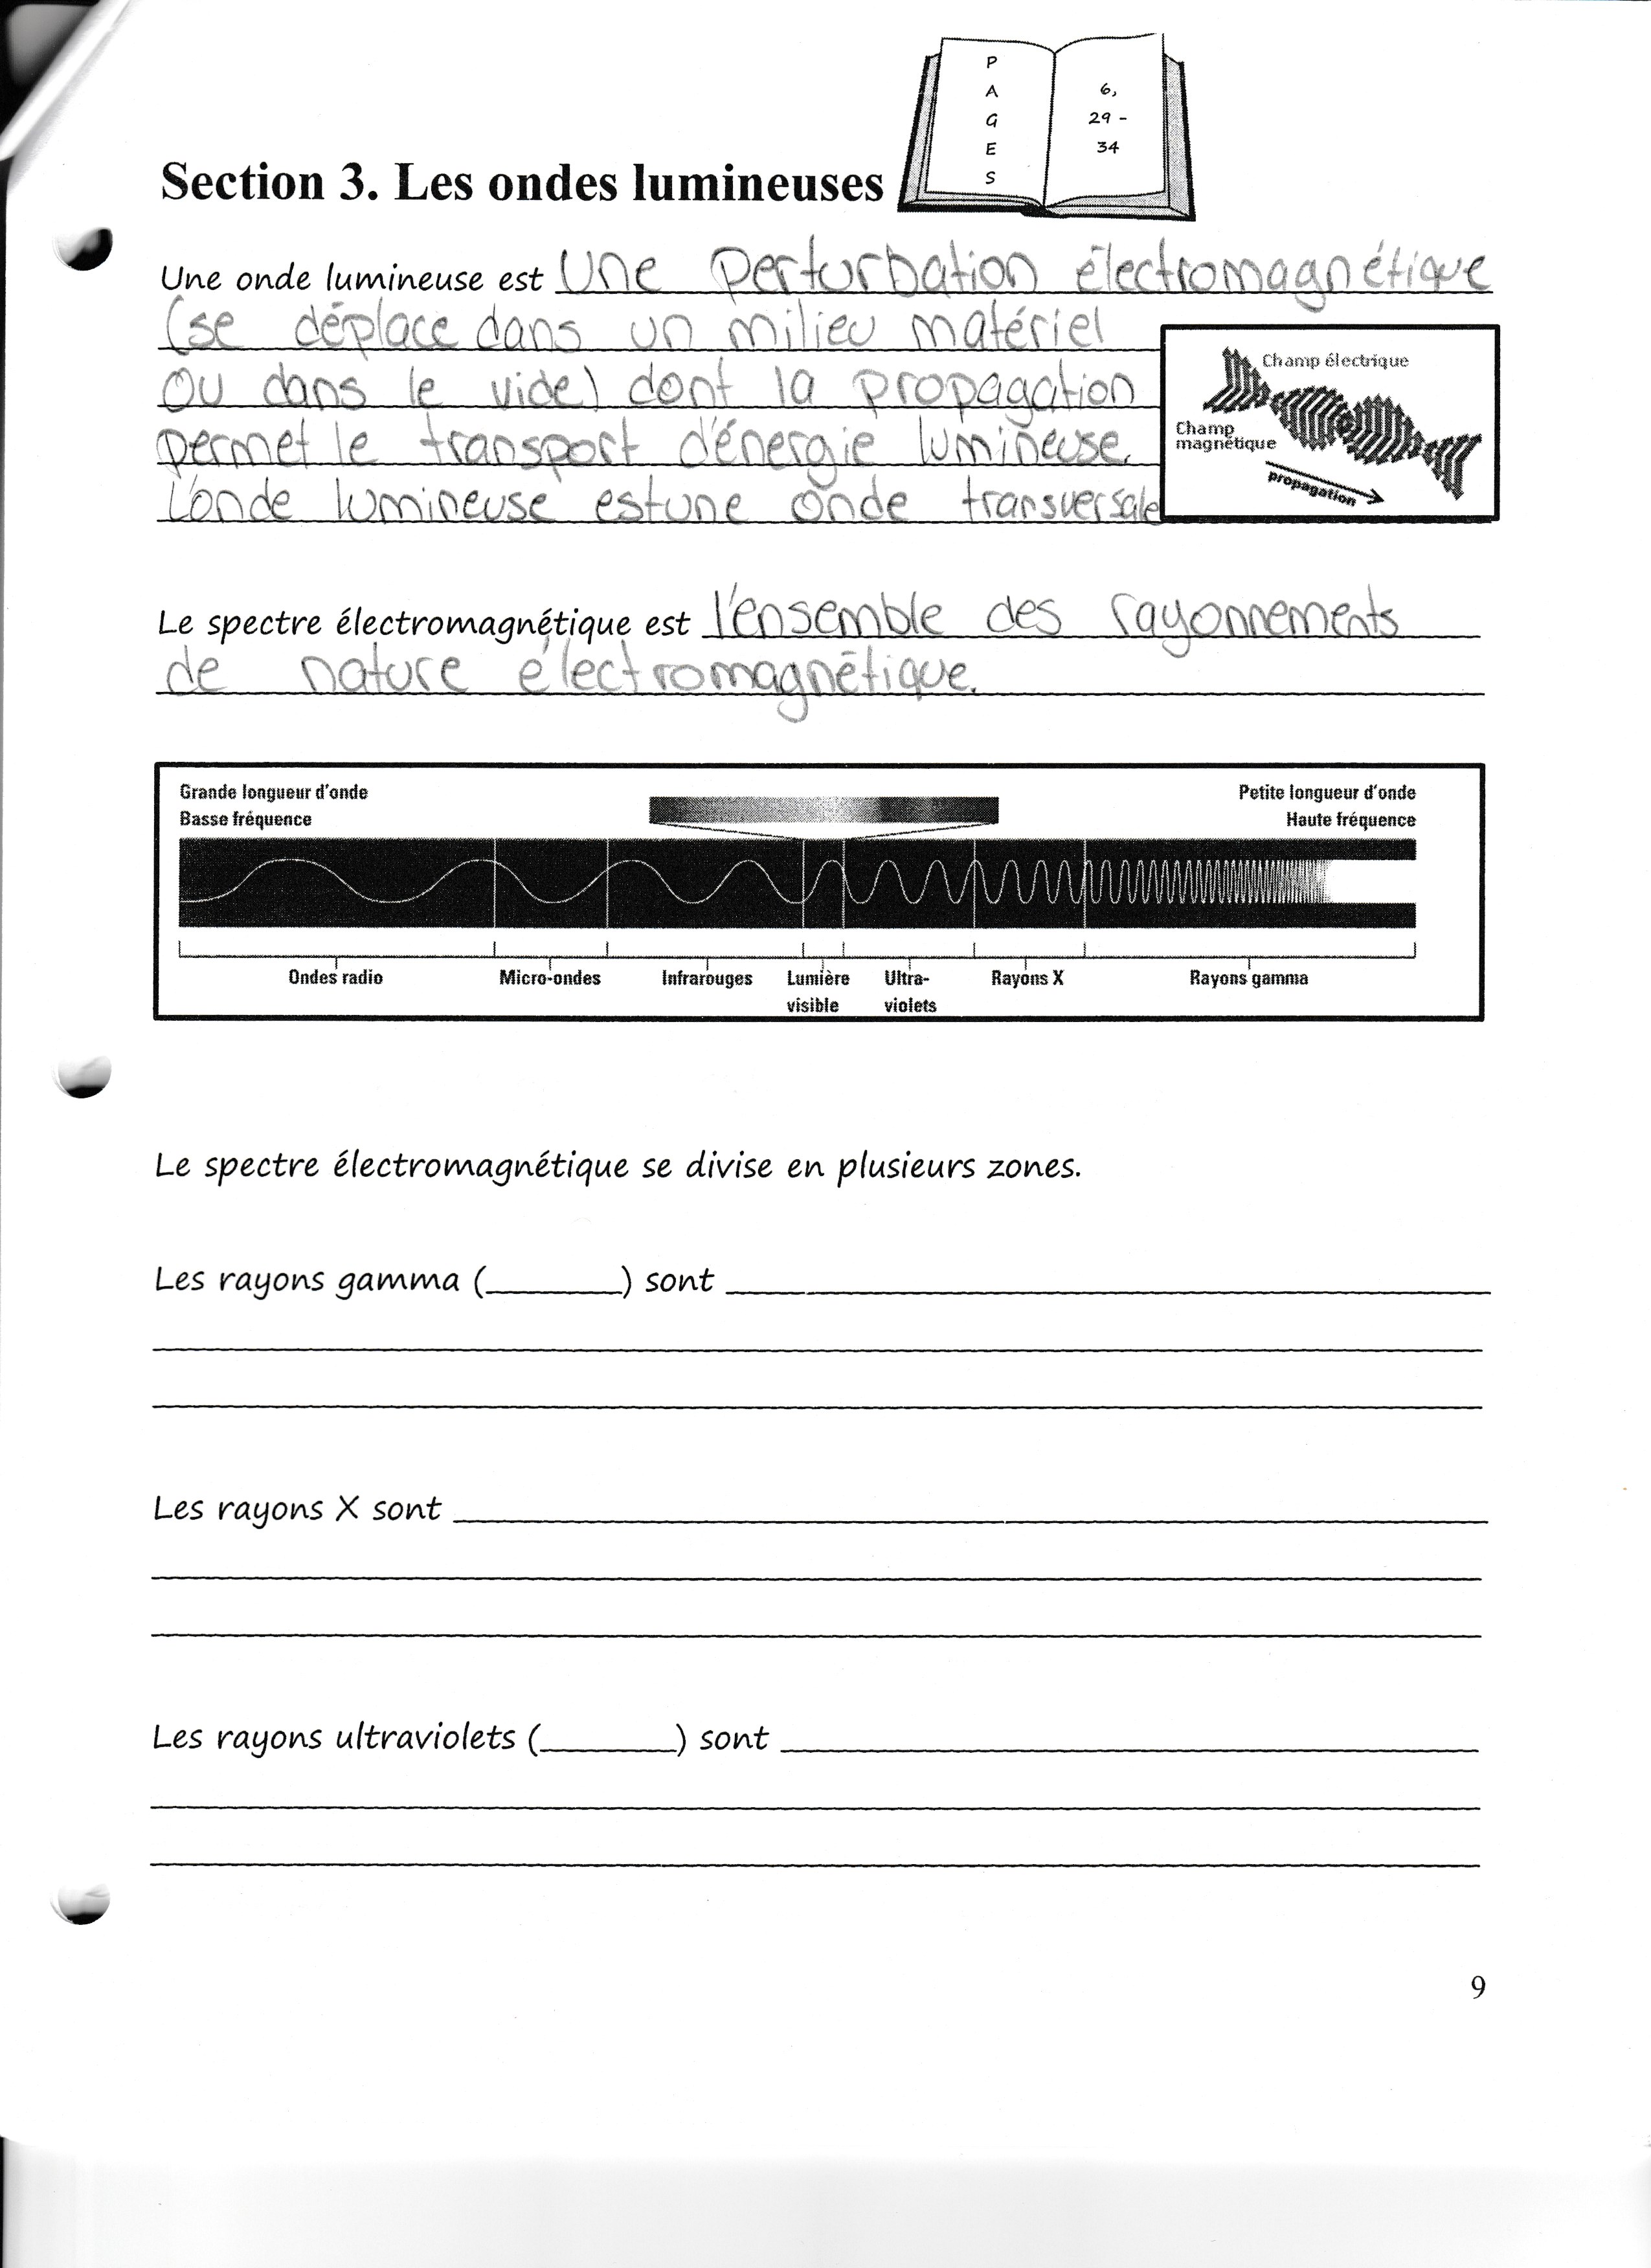 P
A
G
E
S
6,
29 -
34
Section 3. Les ondes lumineuses
Une onde lumineuse est une perturbation électromagnétique
(se déplace dans un milieu matériel
ou dans le vide) dont la propagation
permet le transport d'énergie lumineuse.
L'onde lumineuse est une onde transversale
Champ électrique
Champ
magnétique
propagation
Le spectre électromagnétique est l'ensemble des rayonnements
de nature électromagnétique.
Grande longueur d'onde
Basse fréquence
Petite longueur d'onde
Haute fréquence
Ondes radio Micro-ondes Infrarouges Lumière visible Ultra-violets Rayons X Rayons gamma
Le spectre électromagnétique se divise en plusieurs zones.
Les rayons gamma (_______) sont
Les rayons X sont
Les rayons ultraviolets (_______) sont
9